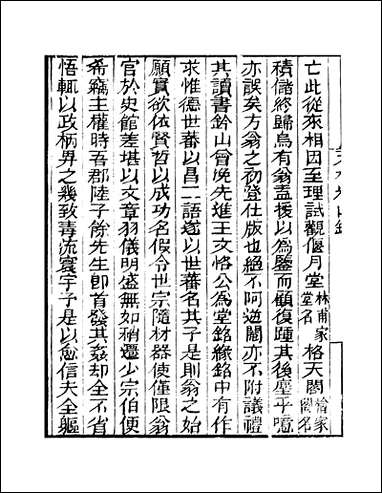 亡此從來相因至理試觀偃月堂林甫家堂名格天閣檜家閣名
積儲終歸烏有翁盍援以為鑒而顧復踵其後塵乎噫
亦誤矣方翁之初登仕版也絕不阿逆閹亦不附議禮
其讀書鈐山曾挽先進王文恪公為堂銘緣銘中有作
求惟德世蕃以昌二語遂以世蕃名其子是則翁之始
願實欲依賢哲以成功名假令世宗隨材器使僅限翁
官於史館差堪以文章羽儀明盛無如稍遷少宗伯便
希竊主權時吾郡陸子餘先生即首發其姦却全不省
悟輒以政柄畀之幾致毒流寰宇子是以愈信夫全軀